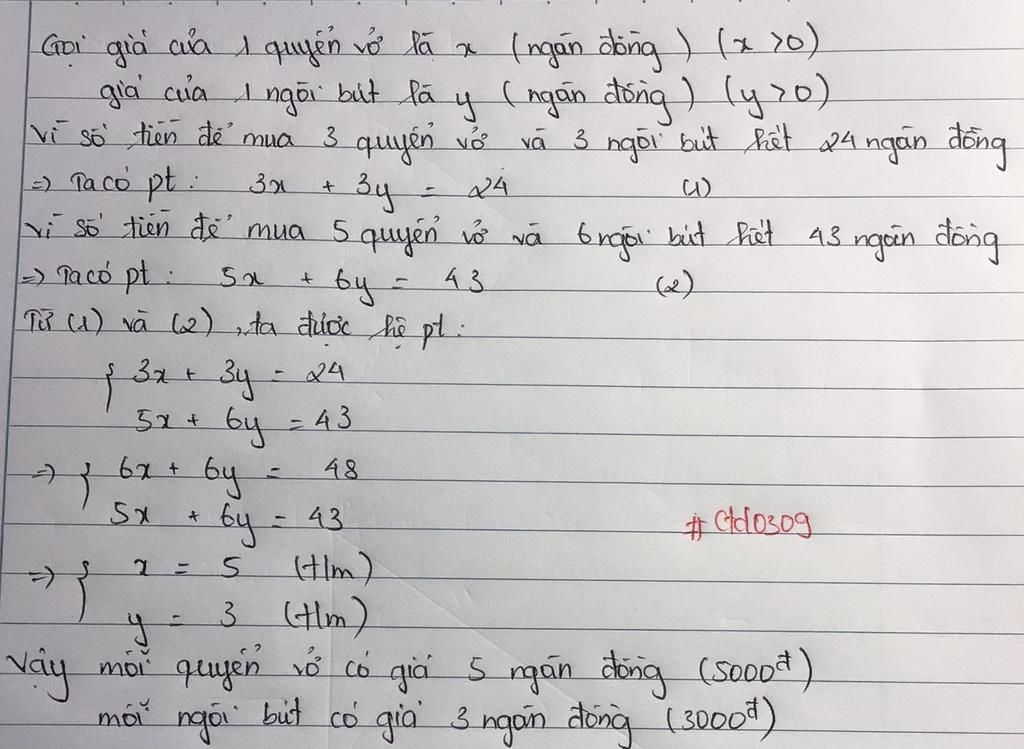 Gọi giá của 1 quyển vở là x (ngàn đồng) (x >0)
giá của 1 ngòi bút là y (ngàn đồng) (y>0)
Vì số tiền để mua 3 quyển vở và 3 ngòi bút hết 24 ngàn đồng
=> Ta có pt: 3x + 3y = 24 (1)
Vì số tiền để mua 5 quyển vở và 6 ngòi bút hết 43 ngàn đồng
=> Ta có pt: 5x + 6y = 43 (2)
Từ (1) và (2), ta được hệ pt:
{ 3x + 3y = 24
5x + 6y = 43
=> { 6x + 6y = 48
5x + 6y = 43
# Ctd0309
=> { x = 5 (t/m)
y = 3 (t/m)
Vậy mỗi quyển vở có giá 5 ngàn đồng (5000đ)
mỗi ngòi bút có giá 3 ngàn đồng (3000đ)